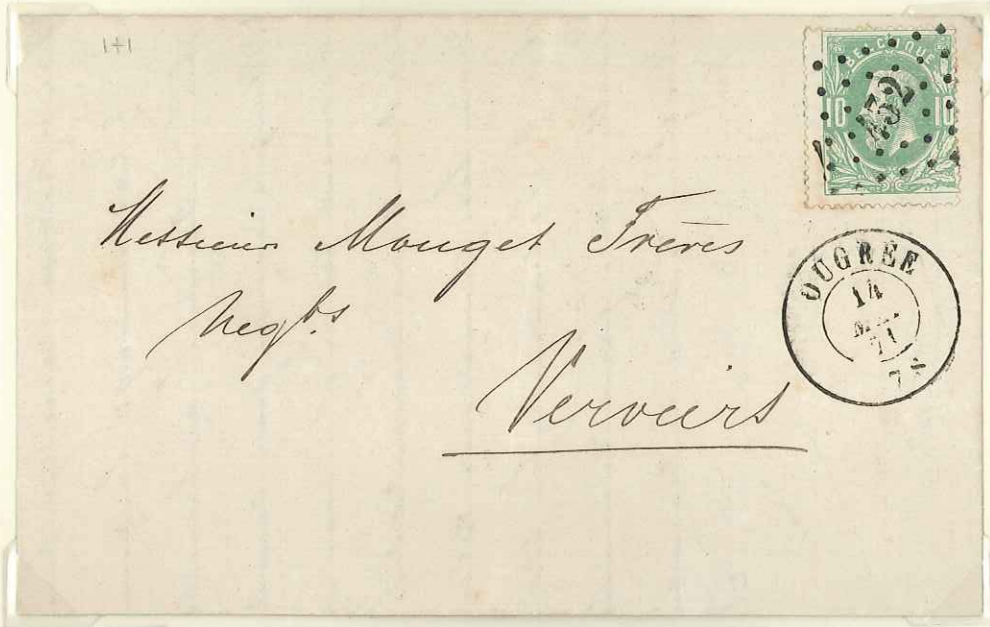 1+1
BELGIQUE
10 10
432
Messieurs Mouget Frères
Negts
Verviers
OUGRÉE
14
71